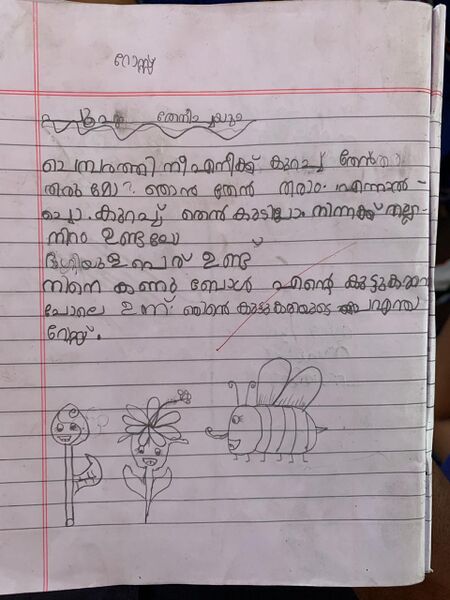 റോസ്സ്
പൂവും തേനീച്ചയും
ചെമ്പരത്തി നീ എനിക്ക് കുറച്ച് തേൻ
തരുമോ?. ഞാൻ തേൻ തരാം. എന്നാൽ
കുറച്ച് തെൻ കുടിച്ചോ നിന്നക്ക് നല്ല
നിറം ഉണ്ടലോ
ഭംഗിയുള പെര് ഉണ്ട്
നിനെ കണ്ടു ബോൾ എന്റെ കൂട്ടുകാരനെ
പോലെ ഉണ്ട്. നിൻറെ കൂട്ടുകരിയുടെ പേര് എന്താ
റോസ്സ്.